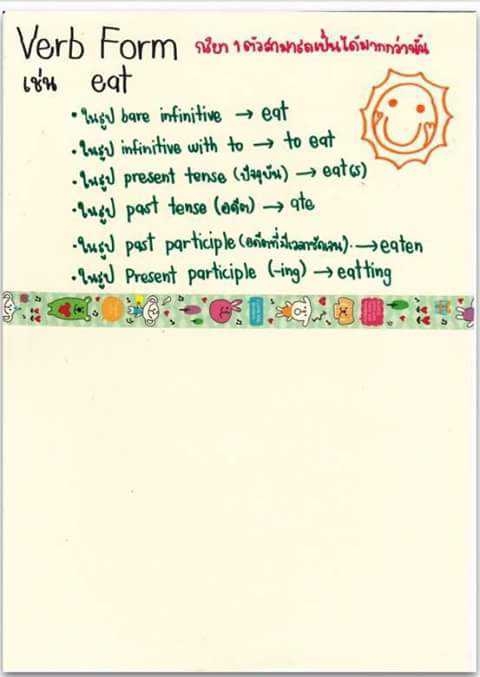 Verb Form กริยา 1 ตัวสามารถเป็นได้มากกว่านั้น
เช่น eat
• ในรูป bare infinitive → eat
• ในรูป infinitive with to → to eat
• ในรูป present tense (ปัจจุบัน) → eat(s)
• ในรูป past tense (อดีต) → ate
• ในรูป past participle (อดีตที่มีเวลาชัดเจน). → eaten
• ในรูป Present participle (-ing) → eatting